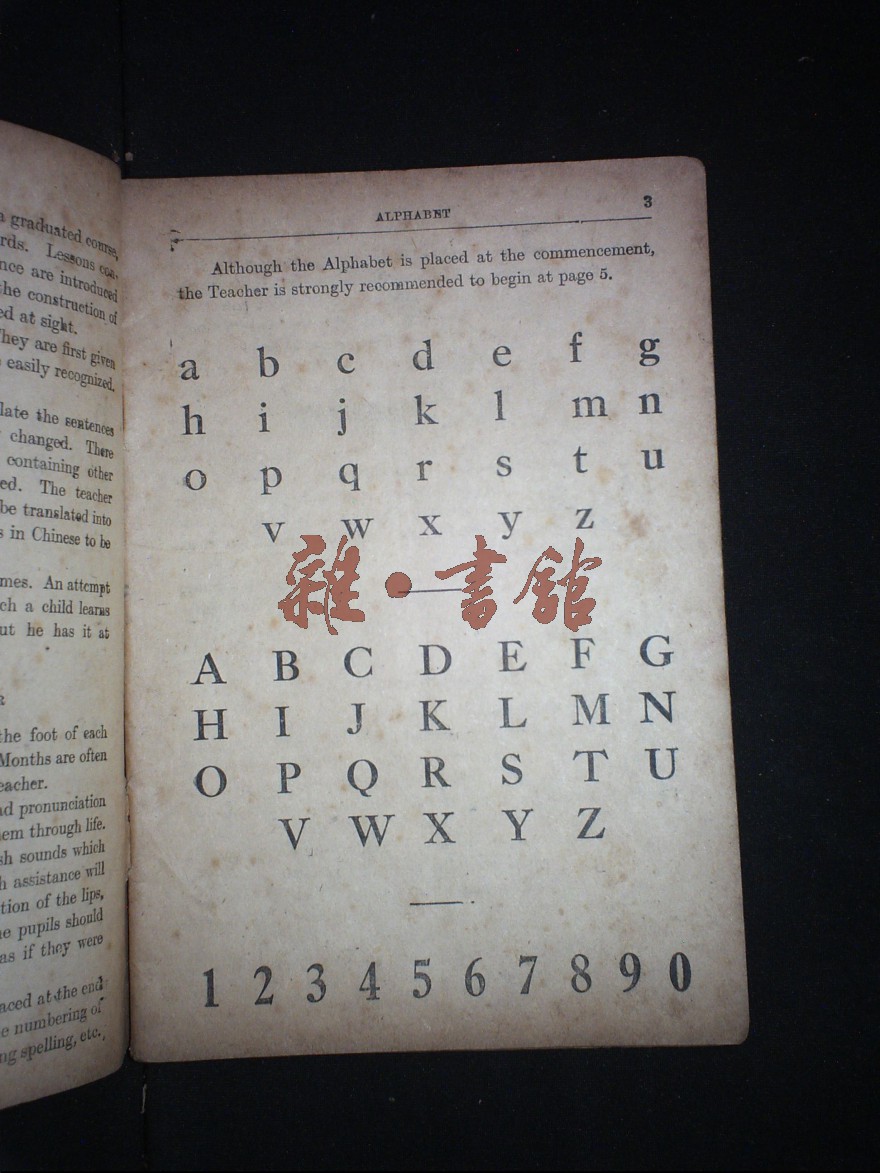 a graduated course,
rds. Lessons con-
nce are introduced
the construction of
ed at sight.
They are first given
easily recognized.
late the sentences
changed. There
containing other
ed. The teacher
be translated into
s in Chinese to be
mes. An attempt
ch a child learns
ut he has it at
R
the foot of each
Months are often
eacher.
nd pronunciation
em through life.
sh sounds which
h assistance will
tion of the lips,
he pupils should
as if they were
aced at the end
e numbering of
ng spelling, etc.,
ALPHABET 3
Although the Alphabet is placed at the commencement,
the Teacher is strongly recommended to begin at page 5.
a b c d e f g
h i j k l m n
o p q r s t u
v w x y z
雜·書館
A B C D E F G
H I J K L M N
O P Q R S T U
V W X Y Z
1 2 3 4 5 6 7 8 9 0